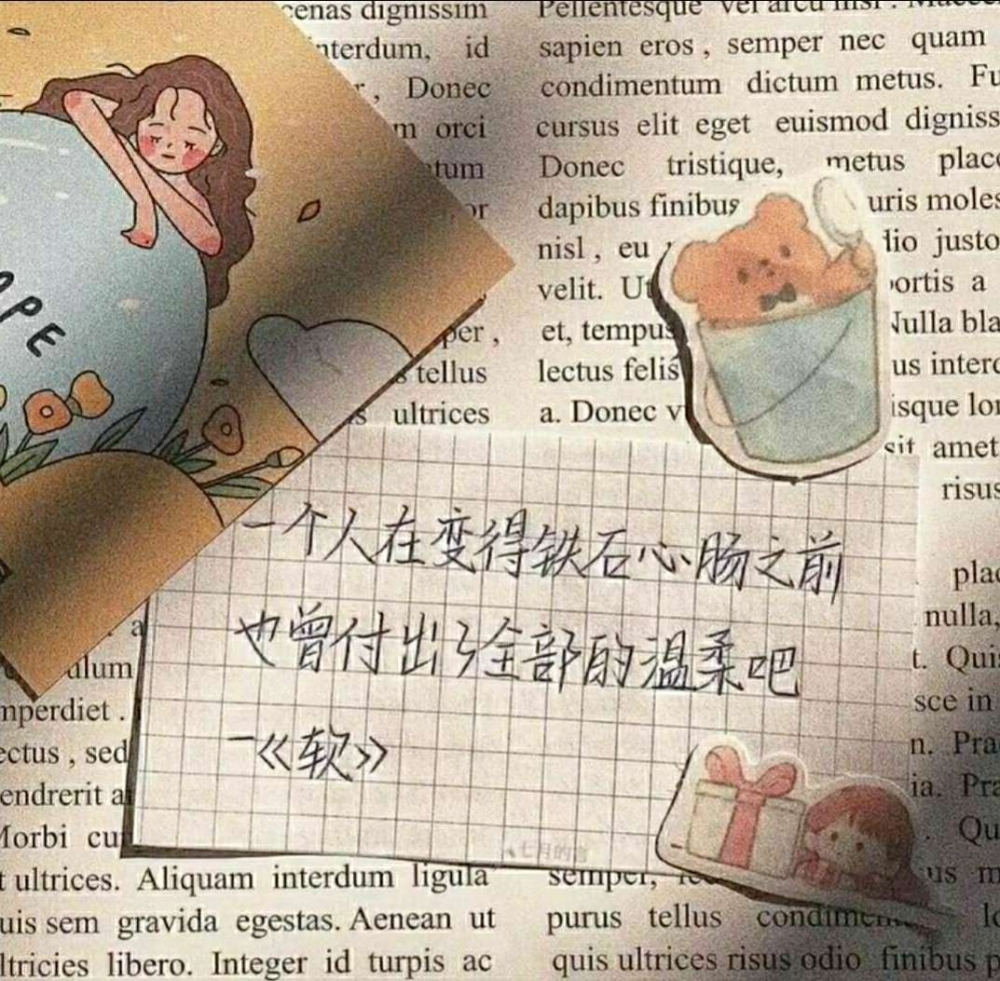 cenas dignissim
interdum, id
, Donec
m orci
tum
or
per ,
tellus
ultrices
Pellentesque vel arcu nisl .
sapien eros , semper nec quam
condimentum dictum metus. Fu
cursus elit eget euismod digniss
Donec tristique, metus place
dapibus finibus uris moles
nisl , eu dio justo
velit. Ut ortis a
et, tempus Nulla bla
lectus felis us interd
a. Donec v isque lor
sit amet
risus
OPE
一个人在变得铁石心肠之前
也曾付出了全部的温柔吧
—《软》
七月的言
a
ulum
mperdiet .
ectus , sed
endrerit a
Morbi cu
t ultrices. Aliquam interdum ligula
uis sem gravida egestas. Aenean ut
ltricies libero. Integer id turpis ac
plac
nulla,
t. Quis
sce in
n. Pra
ia. Pra
. Qu
us m
semper,
purus tellus condimen
quis ultrices risus odio finibus p